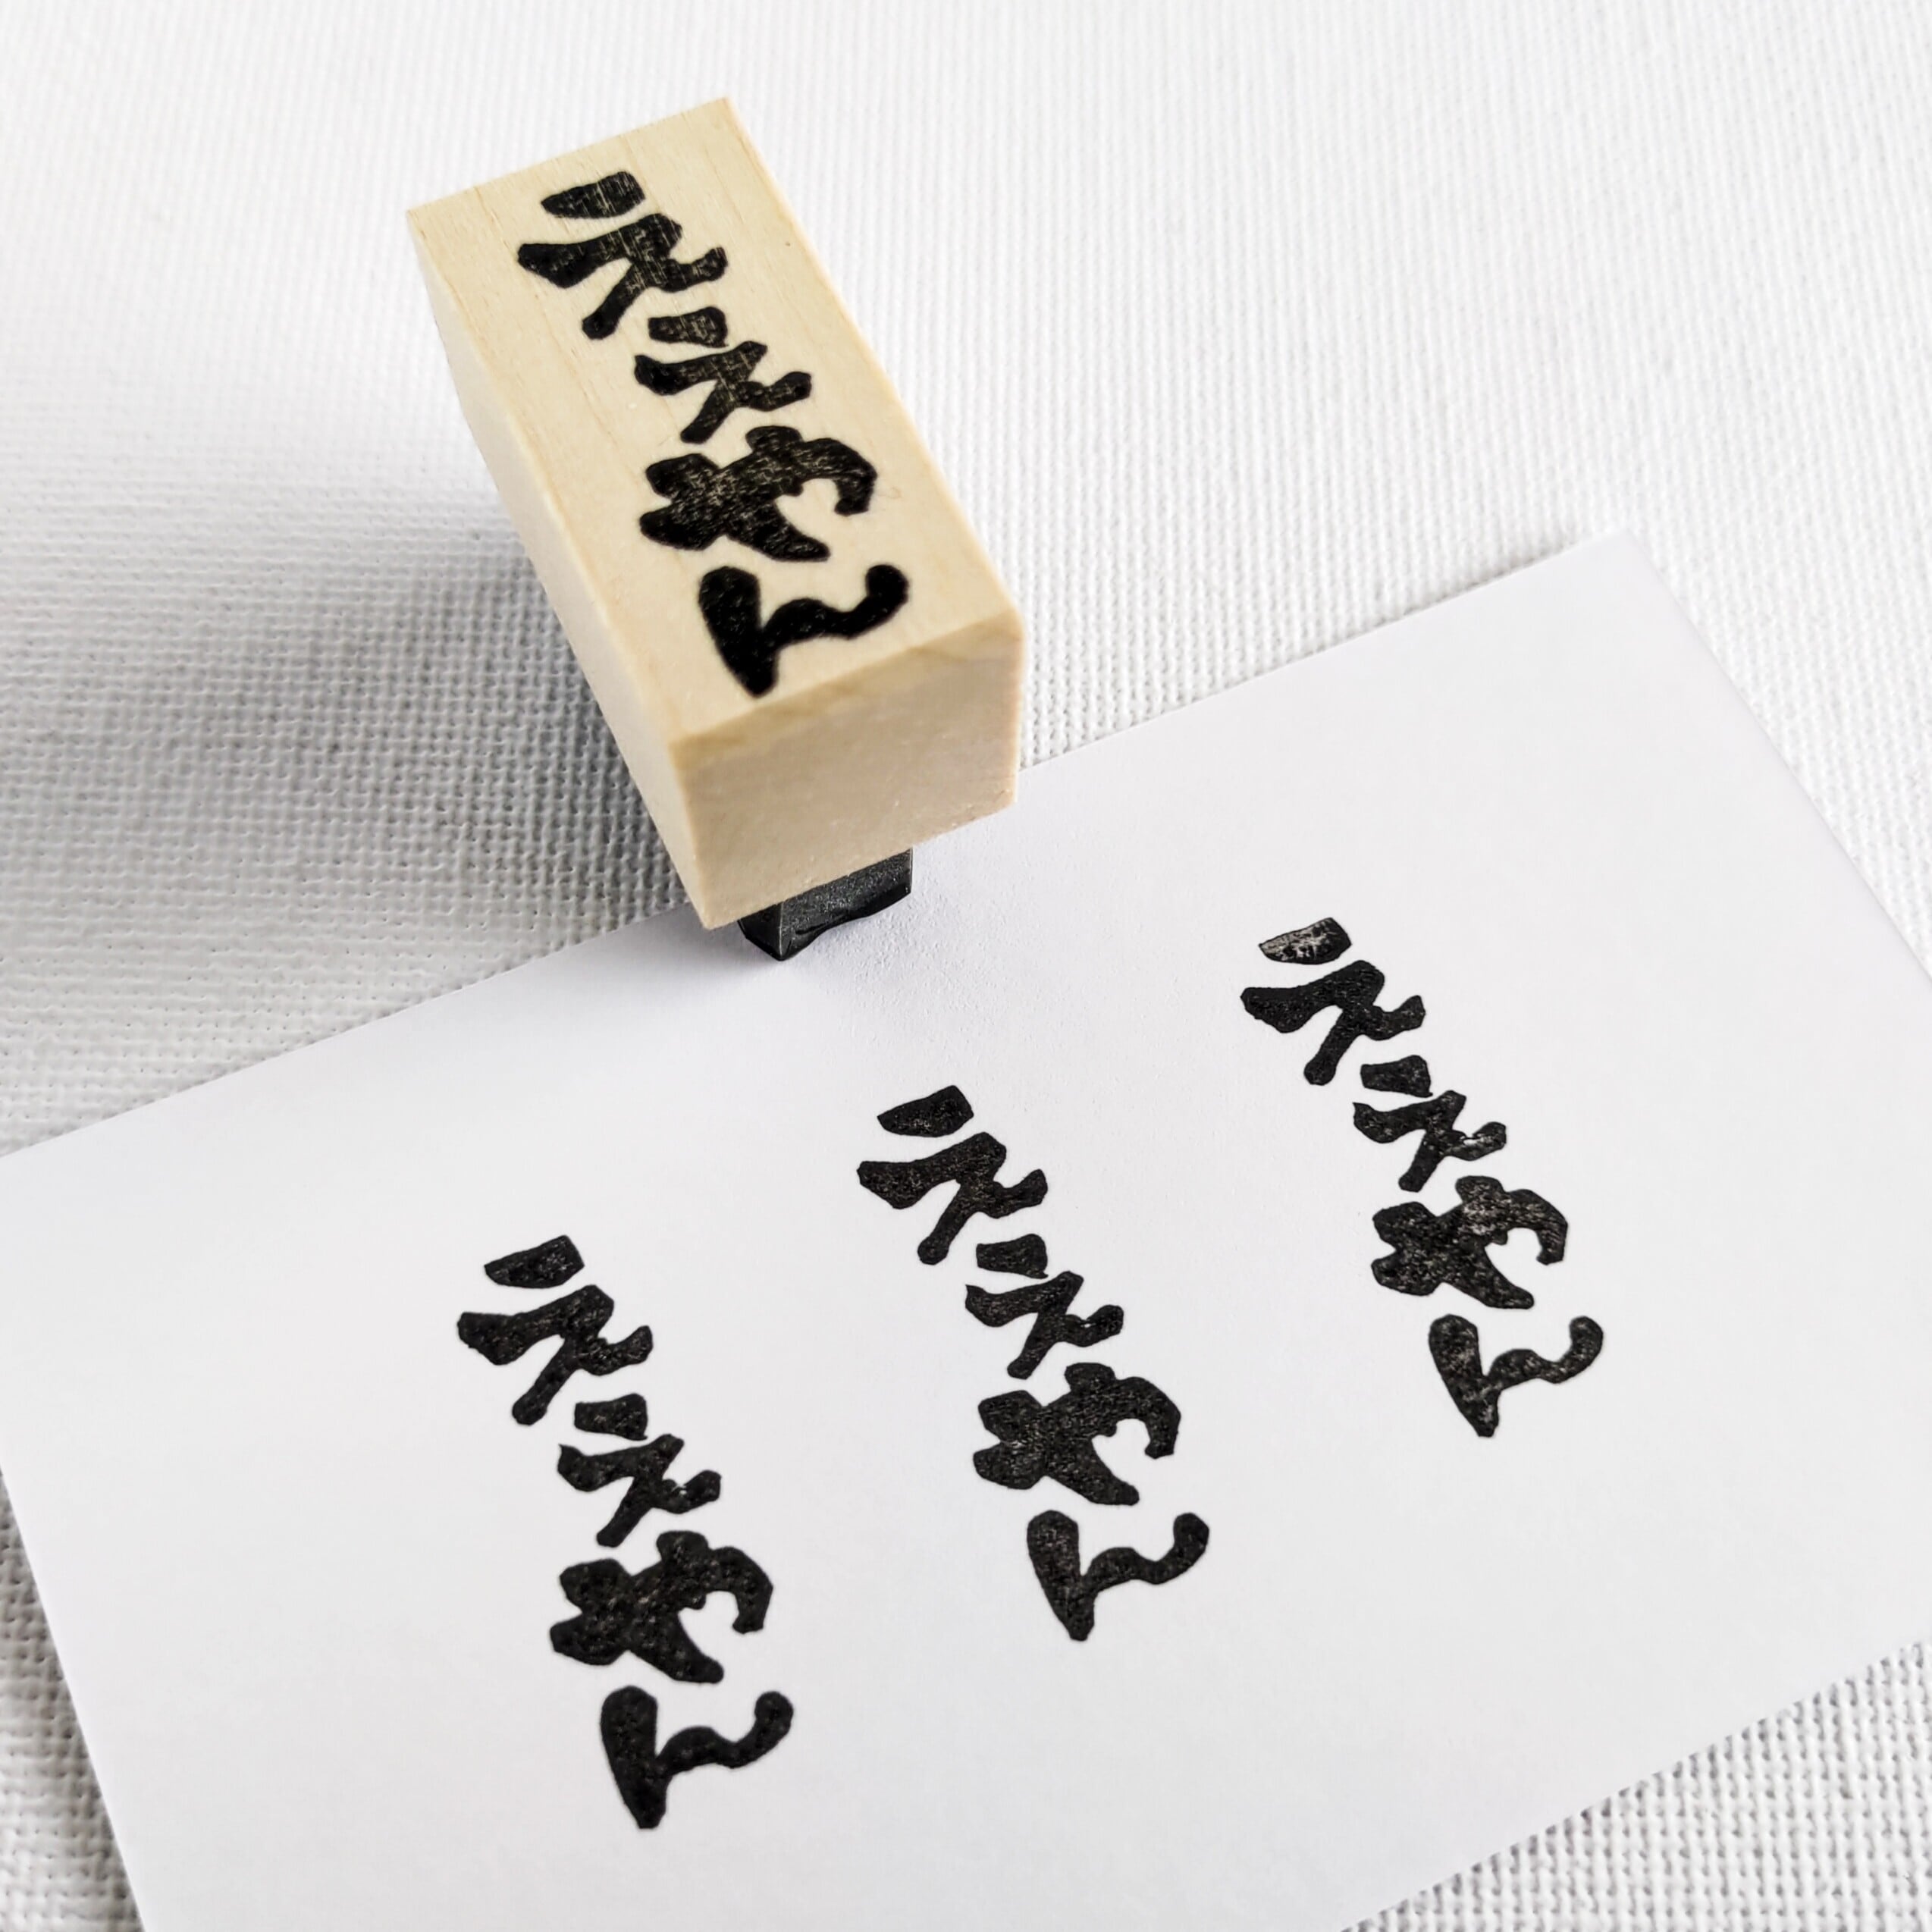 ええやん
ええやん
ええやん
ええやん